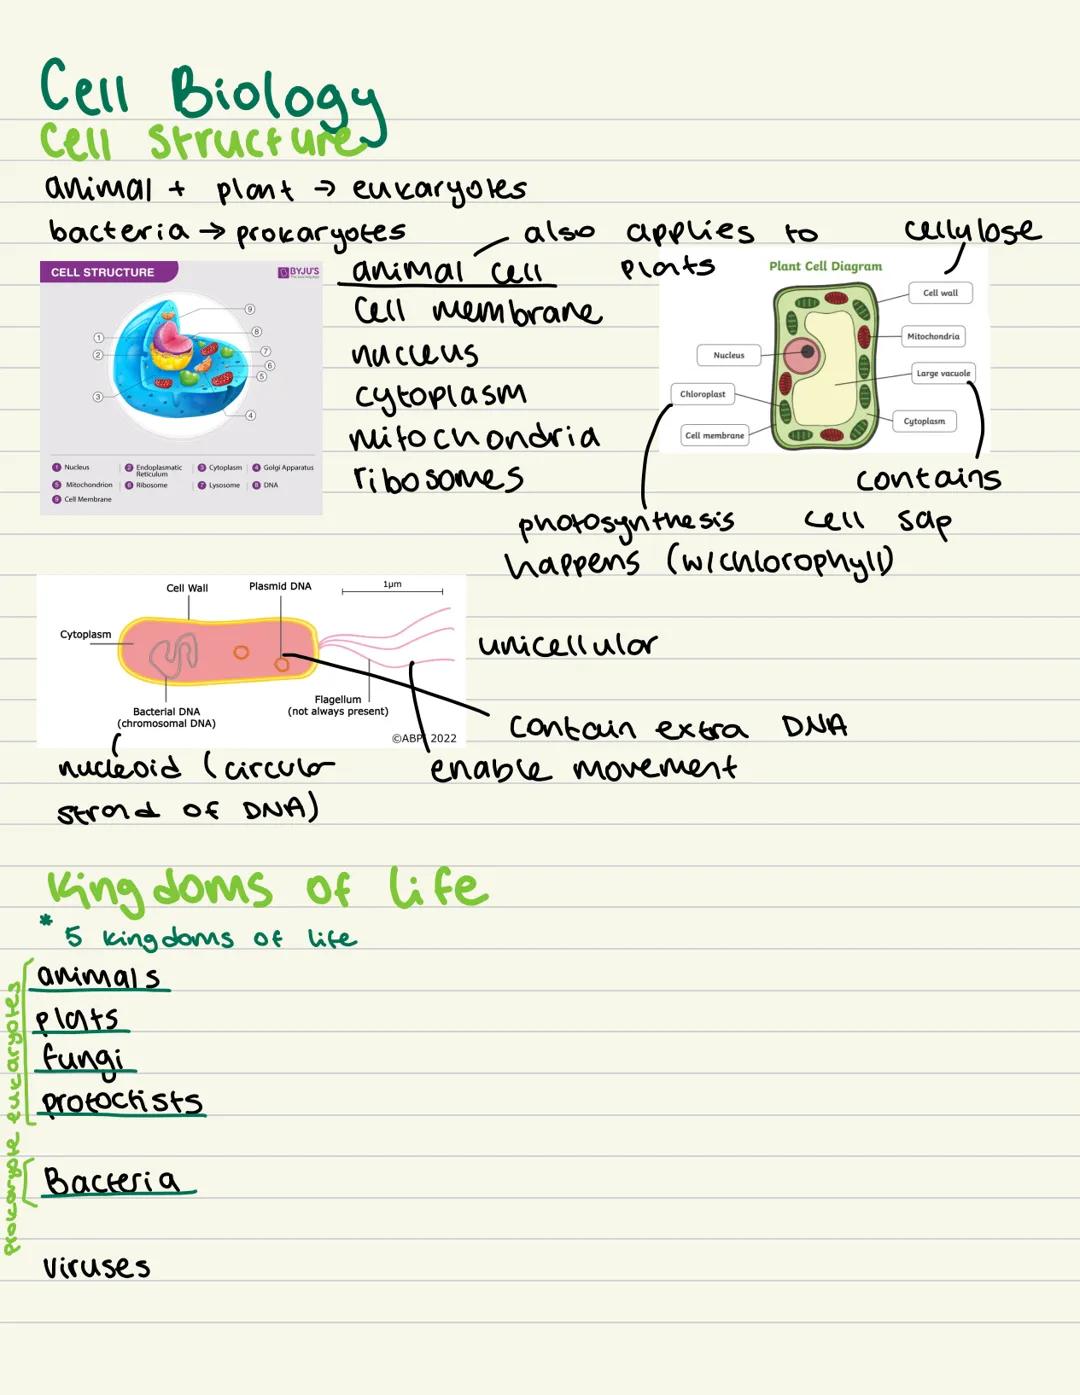 Cell Biology
Cell Structure
animal + plant → eukaryotes
bacteria → prokaryotes
also applies to
plats
cellylose
CELL STRUCTURE
BYJU'S
The Learning App
9
8
7
6
5
4
1
2
3
1 Nucleus
2 Endoplasmatic
Reticulum
3 Cytoplasm
4 Golgi Apparatus
5 Mitochondrion
6 Ribosome
7 Lysosome
8 DNA
9 Cell Membrane
animal cell
Cell membrane
nucleus
cytoplasm
mitochondria
ribosomes
Plant Cell Diagram
Cell wall
Mitochondria
Nucleus
Large vacuole
Chloroplast
Cytoplasm
Cell membrane
contains
cell sap
photosynthesis
happens (w/chlorophyll)
Cell Wall
Plasmid DNA
1µm
Cytoplasm
Bacterial DNA
(chromosomal DNA)
Flagellum
(not always present)
©ABPI 2022
unicellular
contain extra DNA
enable movement
nucleoid (circular
strand of DNA)
Kingdoms of life
* 5 kingdoms of life
animals
plats
fungi
protoctists
eukaryotes
Bacteria
prokaryote
viruses